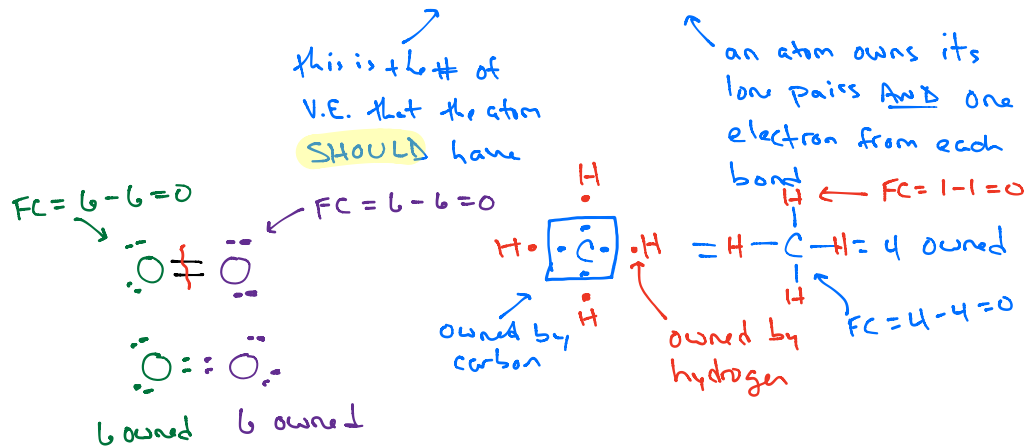 this is the # of
V.E. that the atom
SHOULD have
an atom owns its
lone pairs AND one
electron from each
bond
FC = 6 - 6 = 0
FC = 6 - 6 = 0
O = O
O :: O
6 owned
6 owned
H
H · C · H
H
owned by
carbon
owned by
hydrogen
H
= H - C - H = 4 owned
H
FC = 1 - 1 = 0
FC = 4 - 4 = 0